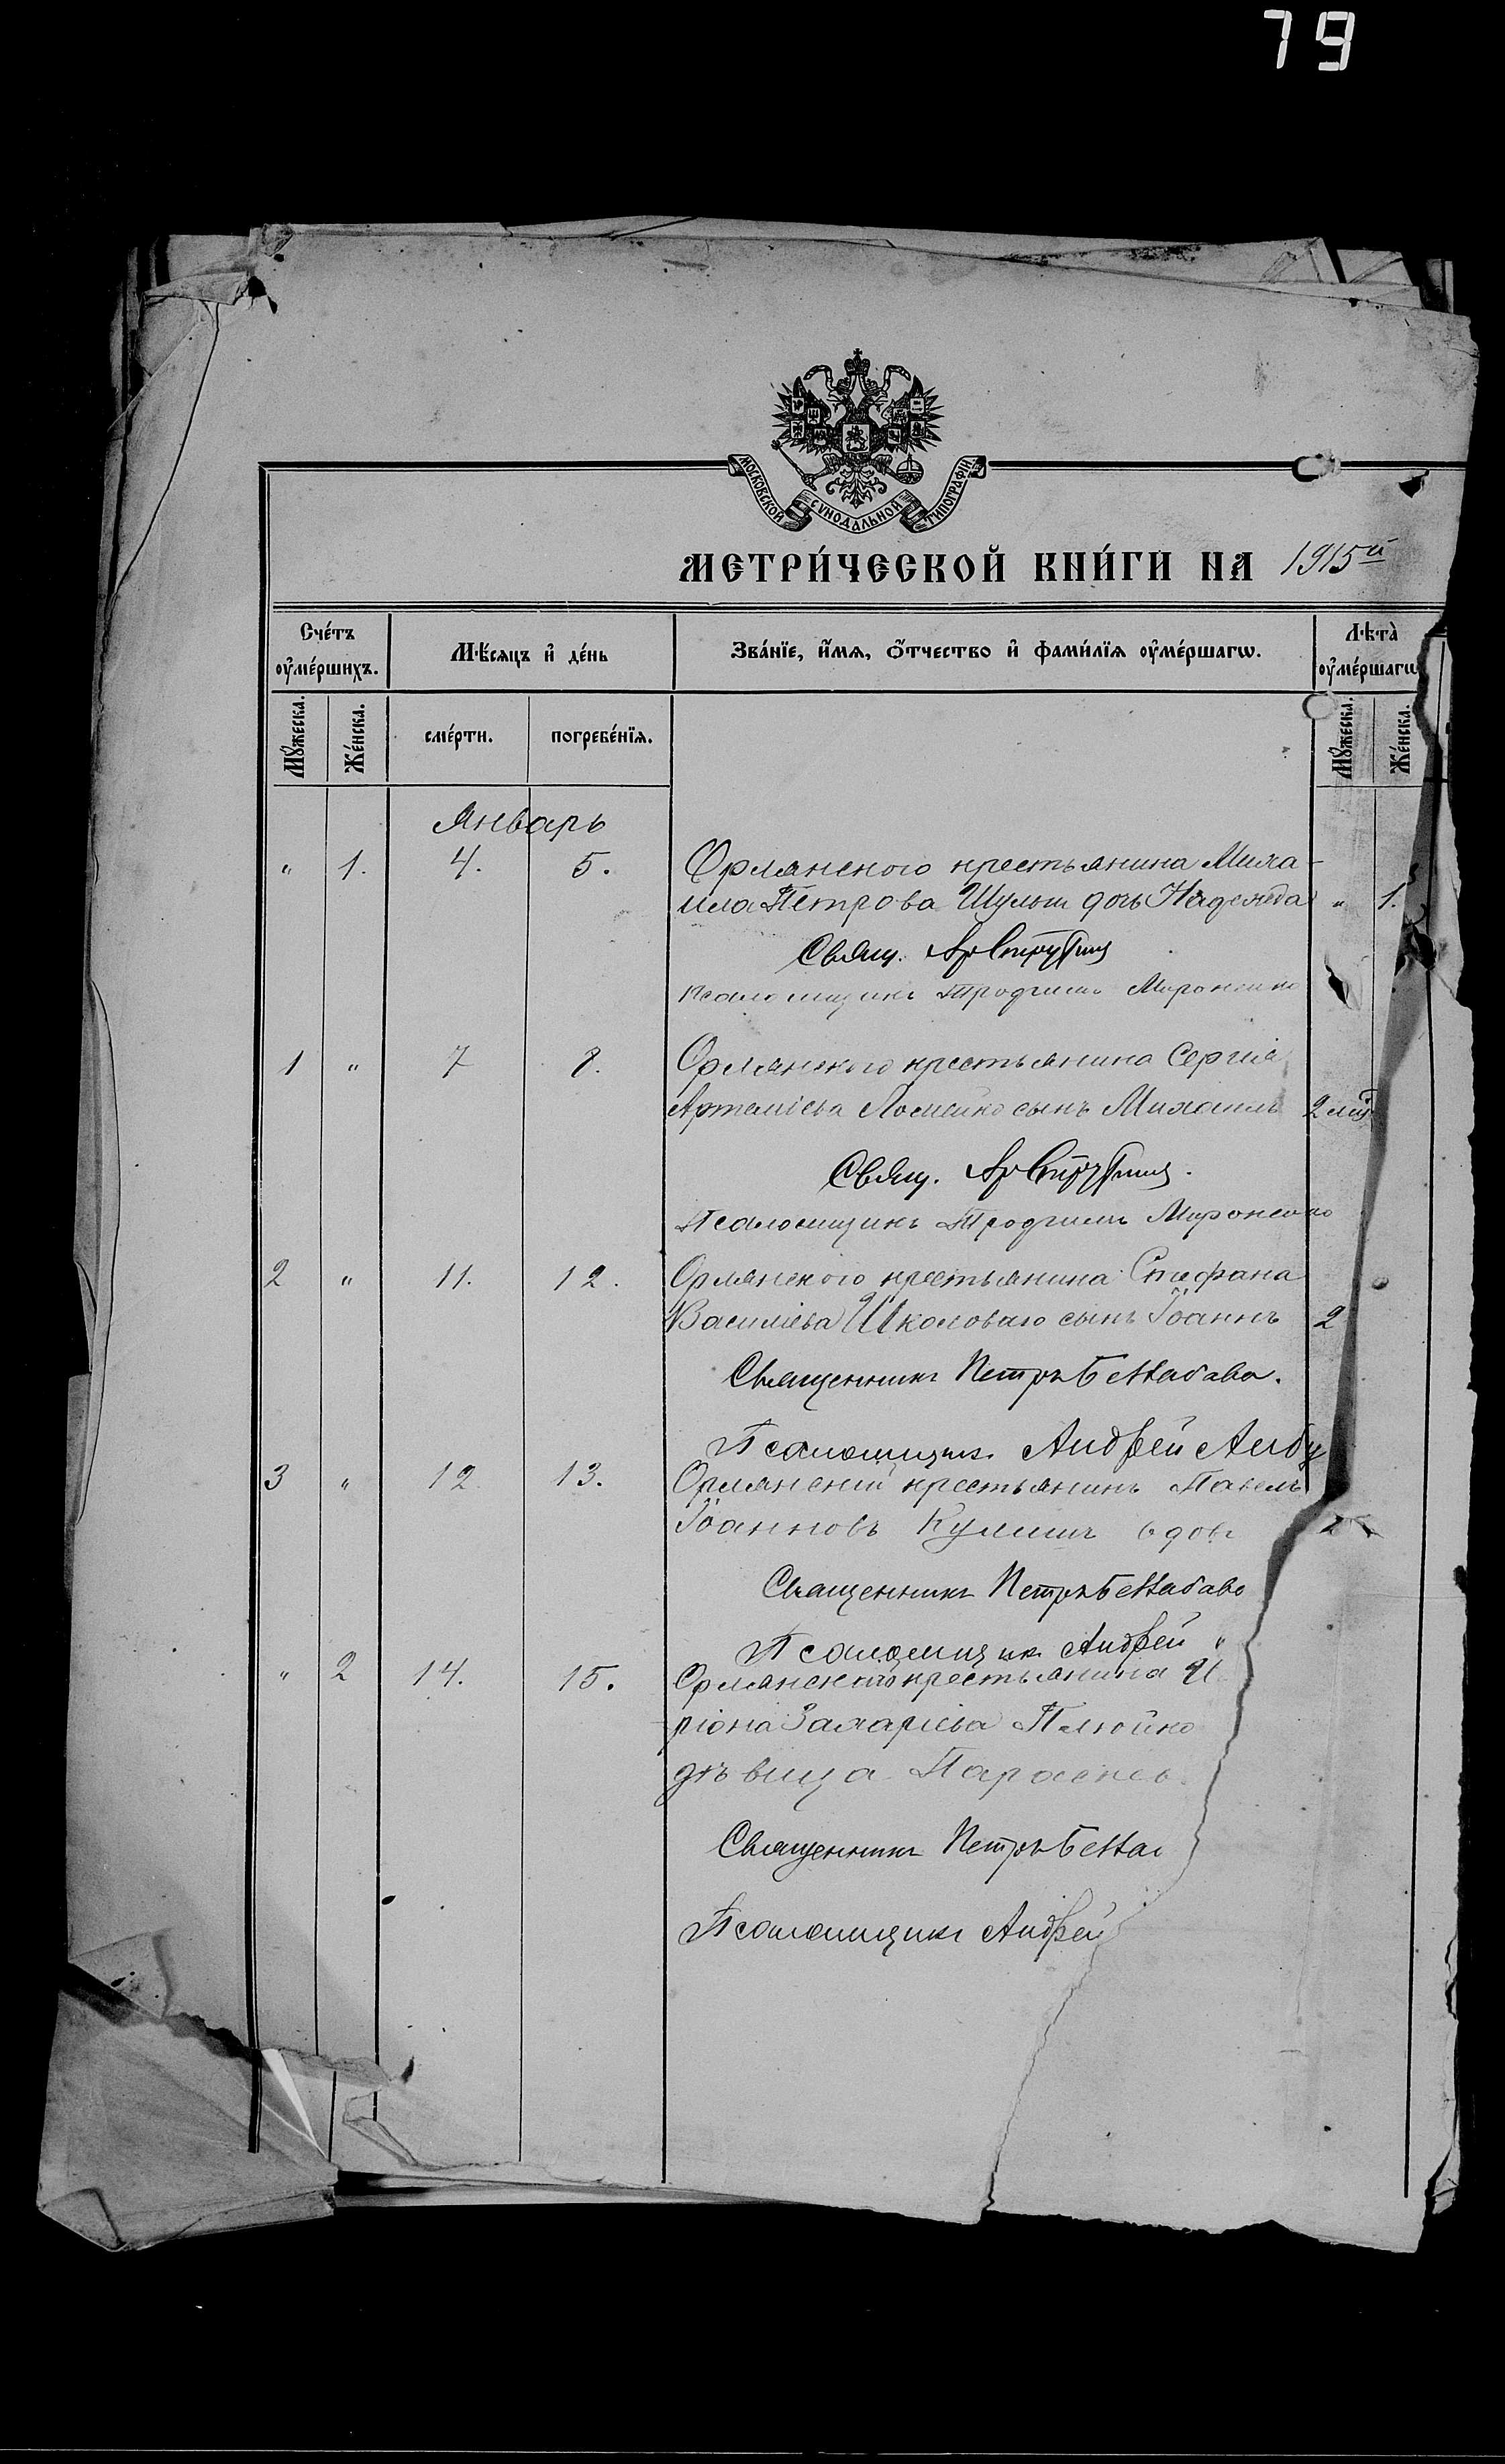 79
МОСКОВСКОЙ СѴНОДАЛЬНОЙ ТИПОГРАФІИ
МЕТРИ́ЧЕСКОЙ КНИ́ГИ НА 1915й
Сче́тъ оу҆ме́ршихъ.
Мѣ́сяцъ и҆ де́нь
Зва́нїе, и҆́мѧ, ѻ҆́тчество и҆ фами́лїѧ оу҆ме́ршагѡ.
Лѣта̀ оу҆ме́ршагѡ
Мꙋ́жеска. Же́нска. сме́рти. погребе́нїѧ. Мꙋ́жеска. Же́нска.
Январь
" 1. 4. 5. Орлянского крестьянина Миха-
ила Петрова Шульги дочь Надежда " 1.
Свящ.
Псаломщикъ Трофимъ Мироненко
1 " 7 8. Орлянского крестьянина Сергія
Артеміева сынъ Михаилъ 2
Свящ.
Псаломщикъ Трофимъ Мироненко
2 " 11. 12. Орлянского крестьянина Стефана
Василіева Школоваго сынъ Іоаннъ 2
Священникъ Петръ
Псаломщикъ Андрей
3 " 12 13. Орлянский крестьянинъ Павелъ
Іоанновъ Кулишъ вдов
Священникъ Петръ
Псаломщик Андрей
" 2 14. 15. Орлянского крестьянина И
ріона Захаріева
дѣвица Параскев
Священникъ Петръ
Псаломщикъ Андрей